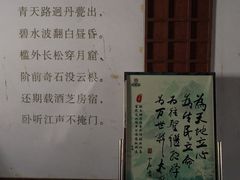 青天路迥丹甍出,
碧水波翻白昼昏。
槛外长松穿月窟,
阶前奇石没云根。
还期载酒芝房宿,
卧听江声不掩门。
為天地立心
為生民立命
为往聖繼絕学
为万世开太平